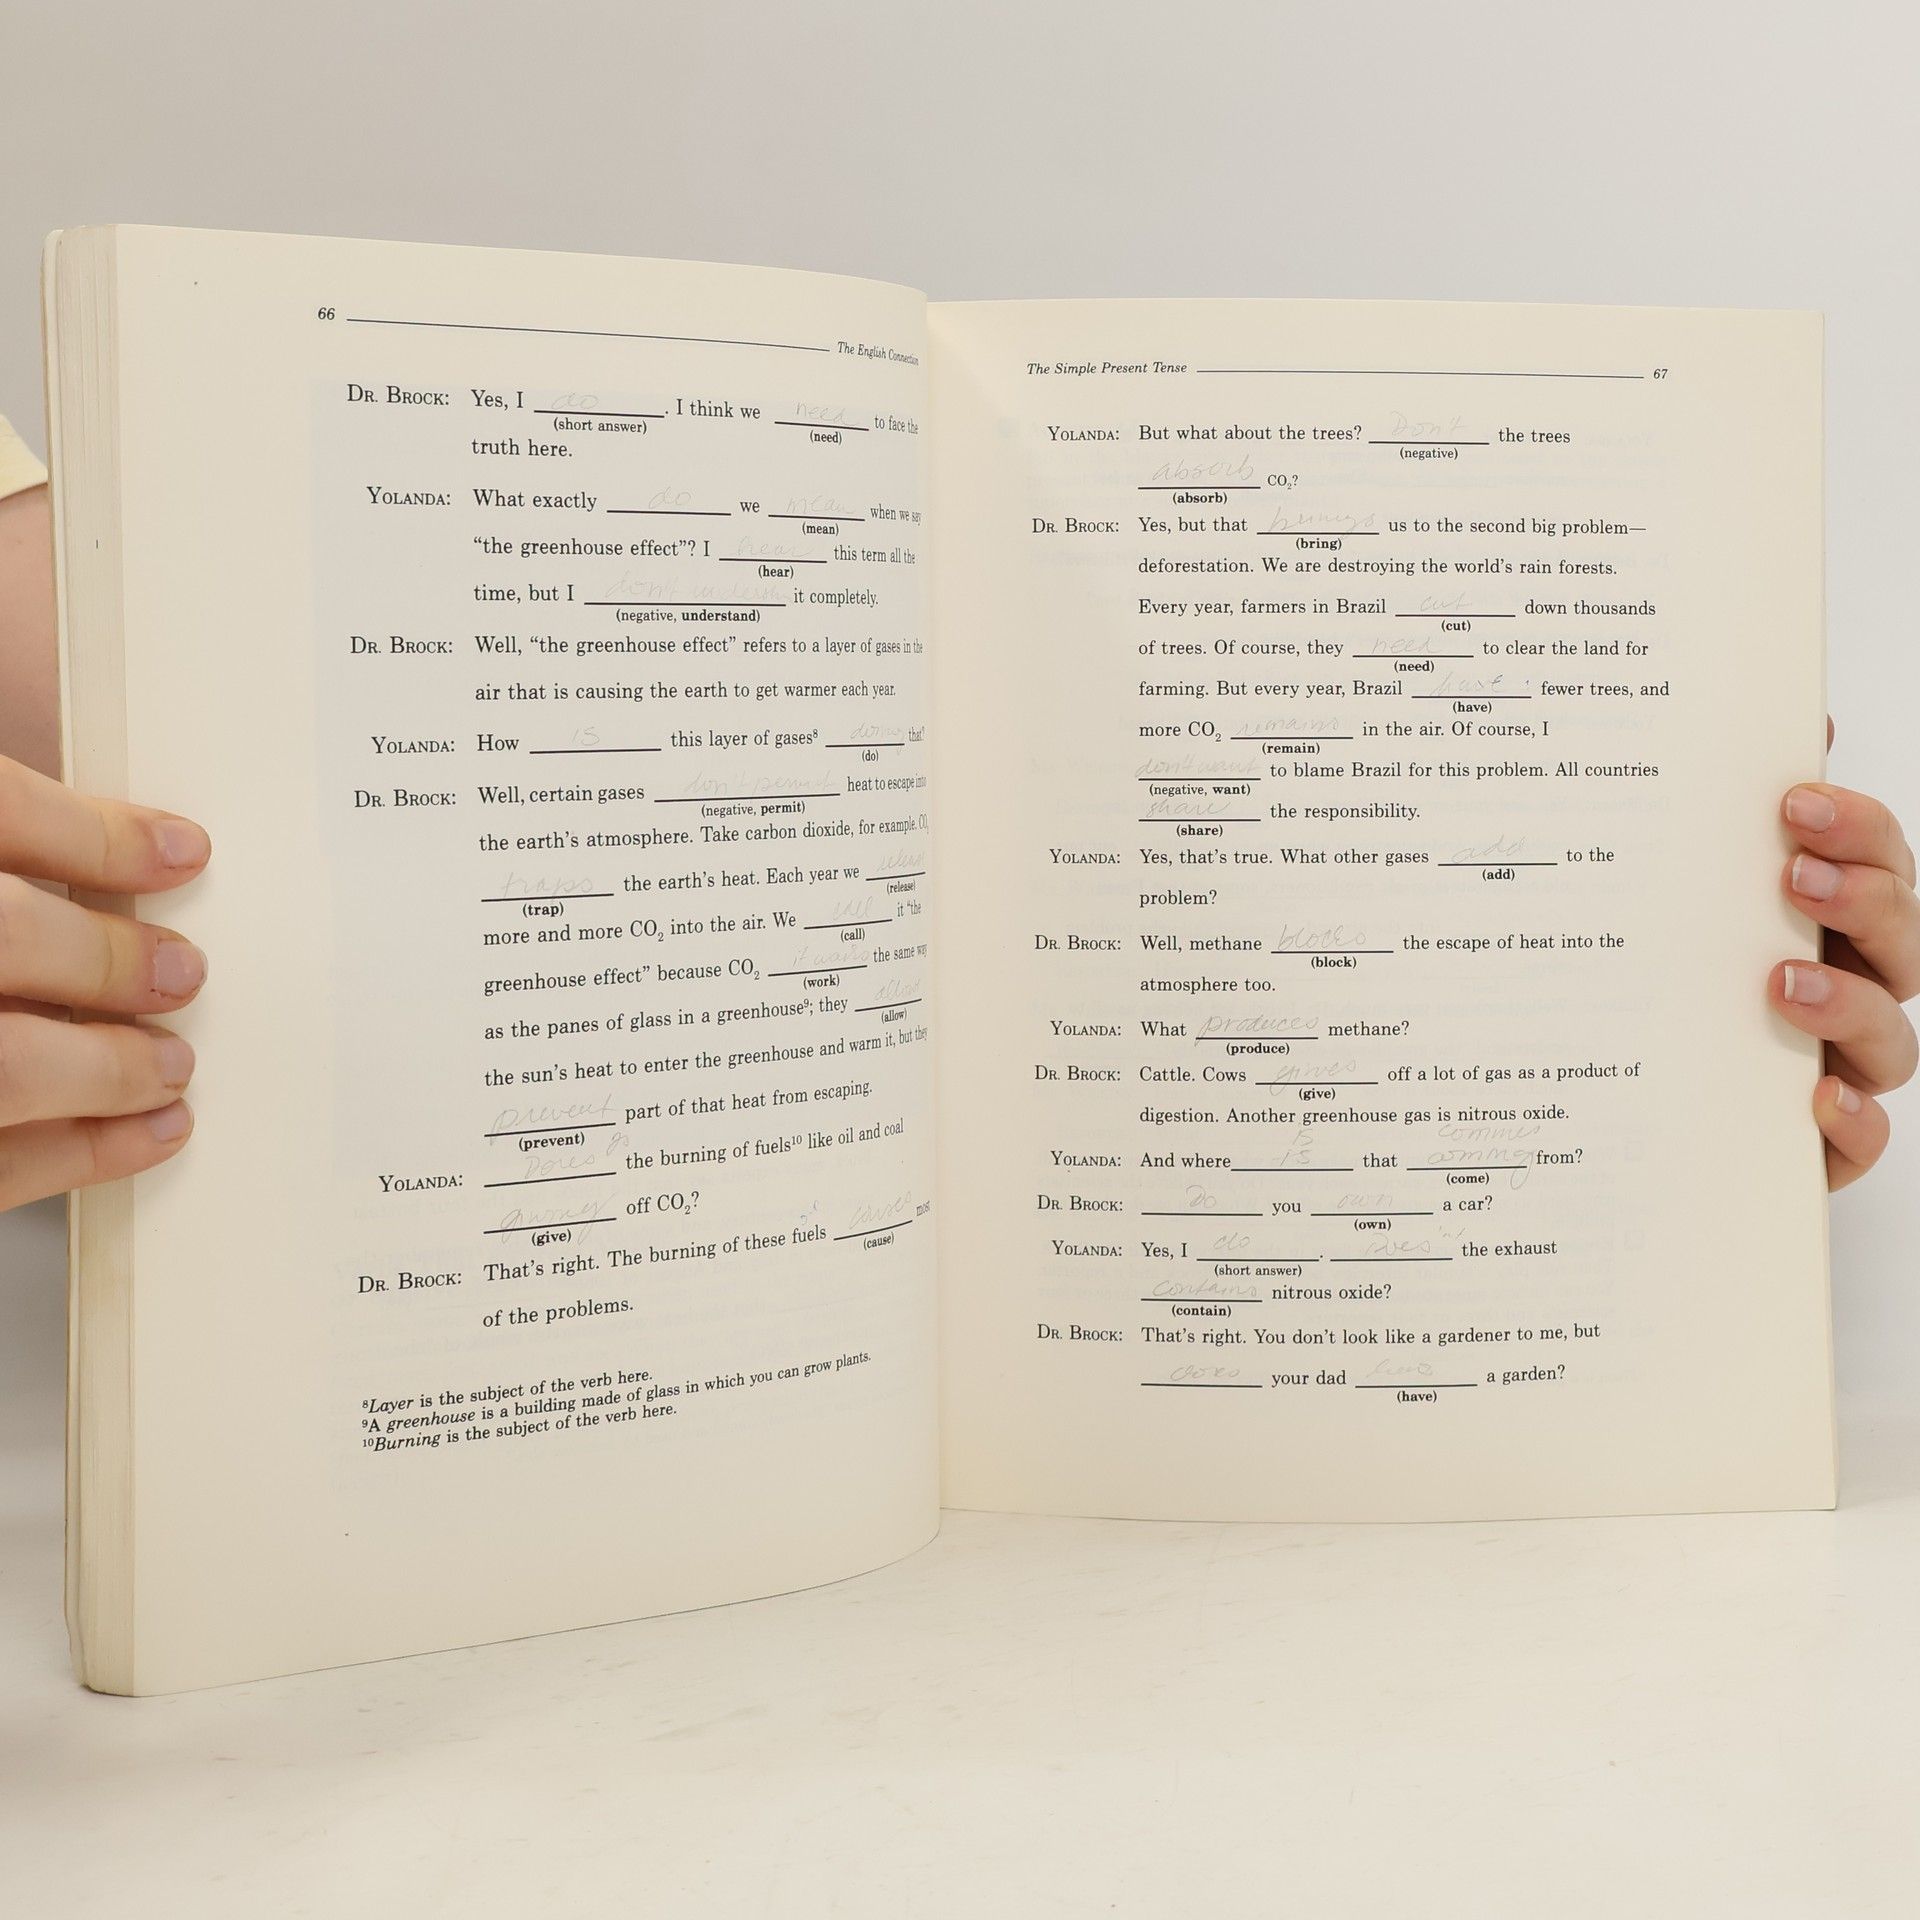 66
The English Connection
DR. BROCK: Yes, I do. I think we need to face the
(short answer) (need)
truth here.
YOLANDA: What exactly do we mean when we say
(mean)
"the greenhouse effect"? I hear this term all the
(hear)
time, but I don't understand it completely.
(negative, understand)
DR. BROCK: Well, "the greenhouse effect" refers to a layer of gases in the
air that is causing the earth to get warmer each year.
YOLANDA: How is this layer of gases⁸ doing that?
(do)
DR. BROCK: Well, certain gases don't permit heat to escape into
(negative, permit)
the earth's atmosphere. Take carbon dioxide, for example. CO₂
traps the earth's heat. Each year we release
(trap) (release)
more and more CO₂ into the air. We call it "the
(call)
greenhouse effect" because CO₂ it works the same way
(work)
as the panes of glass in a greenhouse⁹; they allow
(allow)
the sun's heat to enter the greenhouse and warm it, but they
prevent part of that heat from escaping.
(prevent)
YOLANDA: Does the burning of fuels¹⁰ like oil and coal
giving off CO₂?
(give)
DR. BROCK: That's right. The burning of these fuels causes most
(cause)
of the problems.
⁸Layer is the subject of the verb here.
⁹A greenhouse is a building made of glass in which you can grow plants.
¹⁰Burning is the subject of the verb here.
The Simple Present Tense 67
YOLANDA: But what about the trees? Don't the trees
(negative)
absorb CO₂?
(absorb)
DR. BROCK: Yes, but that brings us to the second big problem—
(bring)
deforestation. We are destroying the world's rain forests.
Every year, farmers in Brazil cut down thousands
(cut)
of trees. Of course, they need to clear the land for
(need)
farming. But every year, Brazil have fewer trees, and
(have)
more CO₂ remains in the air. Of course, I
(remain)
don't want to blame Brazil for this problem. All countries
(negative, want)
share the responsibility.
(share)
YOLANDA: Yes, that's true. What other gases add to the
(add)
problem?
DR. BROCK: Well, methane blocks the escape of heat into the
(block)
atmosphere too.
YOLANDA: What produces methane?
(produce)
DR. BROCK: Cattle. Cows gives off a lot of gas as a product of
(give)
digestion. Another greenhouse gas is nitrous oxide.
is commes
YOLANDA: And where is that coming from?
(come)
DR. BROCK: Do you own a car?
(own)
YOLANDA: Yes, I do. Does'nt the exhaust
(short answer)
contains nitrous oxide?
(contain)
DR. BROCK: That's right. You don't look like a gardener to me, but
does your dad has a garden?
(have)